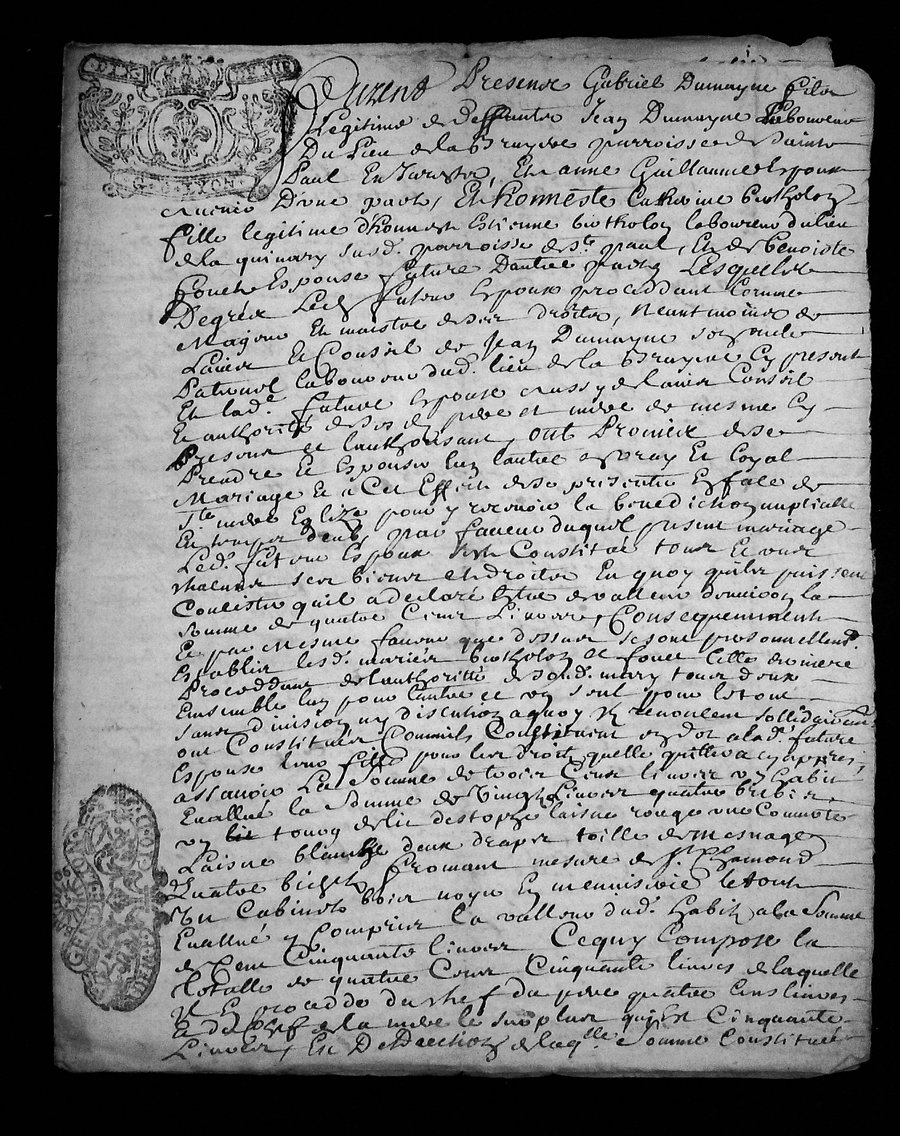 PAR GENIE
G. LYON
Furent Presens Gabriel Dumayne filz
Legitime de deffunctz Jean Dumayne Laboureur
Du Lieu de la Brayne parroisse de Sainte
Paul En Jarestz, Et anne Guillaume Espoux
advenir D'une part, Et honneste Catherine Bertholon
fille legitime d'honneste Estienne bertholon laboureur du lieu
de la quinary susd. parroisse de st. paul, Et de Benoiste
fouch Espouse future Dautre part Lesquelles
De gres Led. futeur Espoux proceddant Comme
Magieur Et maistre de ses droitz, Neantmoings de
Laduis Et Conseil de Jean Dumayne son oncle
Paternel laboureur dud. lieu de la Brayne Cy present
Et lad. future Espouse aussy de laduis Conseil
Et authorité de ses d. pere et mere de mesme Cy
Presens et lauthorisant, ont Promis de se
Prendre Et Espouser lun lautre en vray Et Loyal
Mariage Et a Cet Effect de se presenter En face de
Ste. mere Eglize pour y recevoir la benediction nuptialle
En temps deub, par faueur duquel present mariage
Led. futeur Espoux sest Constitué tous Et uns
chacuns ses biens et droitz En quoy quilz puissent
Concister quil a declaré Estre de valleur denuiron la
somme de quatre Cens Liures, Consequemment
Et par Mesme faueur que dessus se sont personnellemt.
Establis lesd. mariés bertholon Et fouch Cette derniere
Proceddant de lauthorité de sond. mary tous deux
Ensemble lun pour lautre et un seul pour le tout
sans diuision ny discution a quoy ilz renoncent sollidairemt.
ont Constitués Comme ilz Constituent en dot a lad. future
Espouse leur fille pour les droitz quelle pretend cy apres,
assauoir La Somme de trois Cens liures un habit
Eualué la Somme de Vingt Liures quatre brebis
un tour de lit destophe laisne rouge une Couuerte
Laisne blanche deux draps toille de mesnage
Quatre bichetz fromant mesure de St. Chamond
Un Cabinet bois noyer En menuiserie le tout
Eualué y Compris la valleur dud. habit a la Somme
de Cent Cinquante liures Ce quy Compose la
totalle de quatre Cens Cinquante liures de laquelle
Il En procedde du chef du pere quatre Cens liures
Et du chef de la mere le surplus quy est Cinquante
Liures, En Deduction de laqlle. Somme Constituée